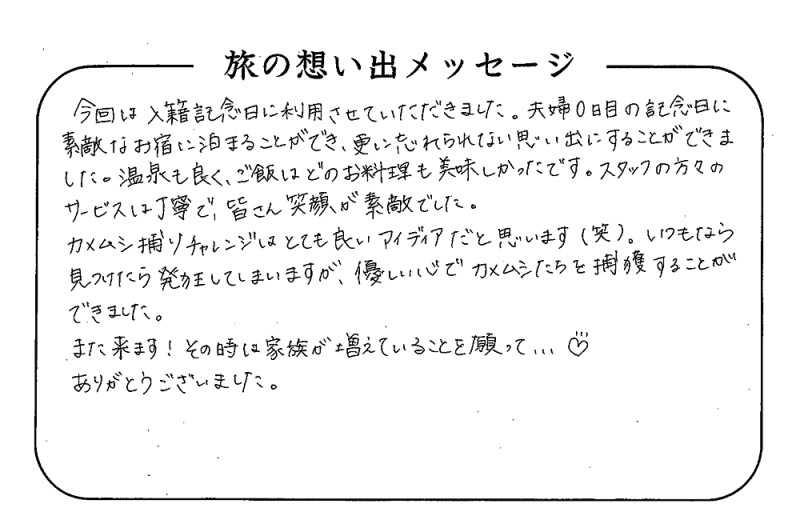 旅の想い出メッセージ
今回は入籍記念日に利用させていただきました。夫婦0日目の記念日に
素敵なお宿に泊まることができ、更に忘れられない思い出にすることができま
した。温泉も良く、ご飯はどのお料理も美味しかったです。スタッフの方々の
サービスは丁寧で、皆さん笑顔が素敵でした。
カメムシ捕りチャレンジはとても良いアイディアだと思います(笑)。いつもなら
見つけたら発狂してしまいますが、優しい心でカメムシたちを捕獲することが
できました。
また来ます!その時は家族が増えていることを願って...♡
ありがとうございました。